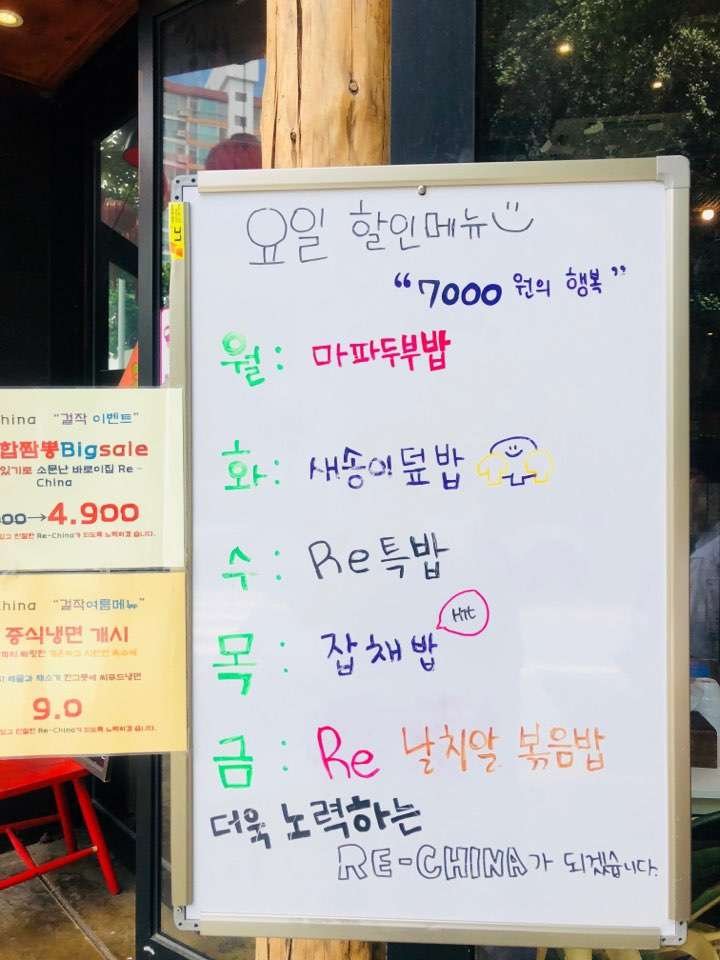 요일 할인메뉴
"7000 원의 행복"
월: 마파두부밥
화: 새송이덮밥
수: Re특밥
목: 잡채밥
Hit
금: Re 날치알 볶음밥
더욱 노력하는
RE-CHINA가 되겠습니다.
china "걸작 이벤트"
합짬뽕Bigsale
있기로 소문난 바로이집 Re-
China
00→4.900
있고 친절한 Re-China가 되도록 노력하겠습니다.
china "걸작여름메뉴"
중식냉면 개시
시원한 육수에
해물과 채소가 씨푸드냉면
9.0
있고 친절한 Re-China가 되도록 노력하겠습니다.